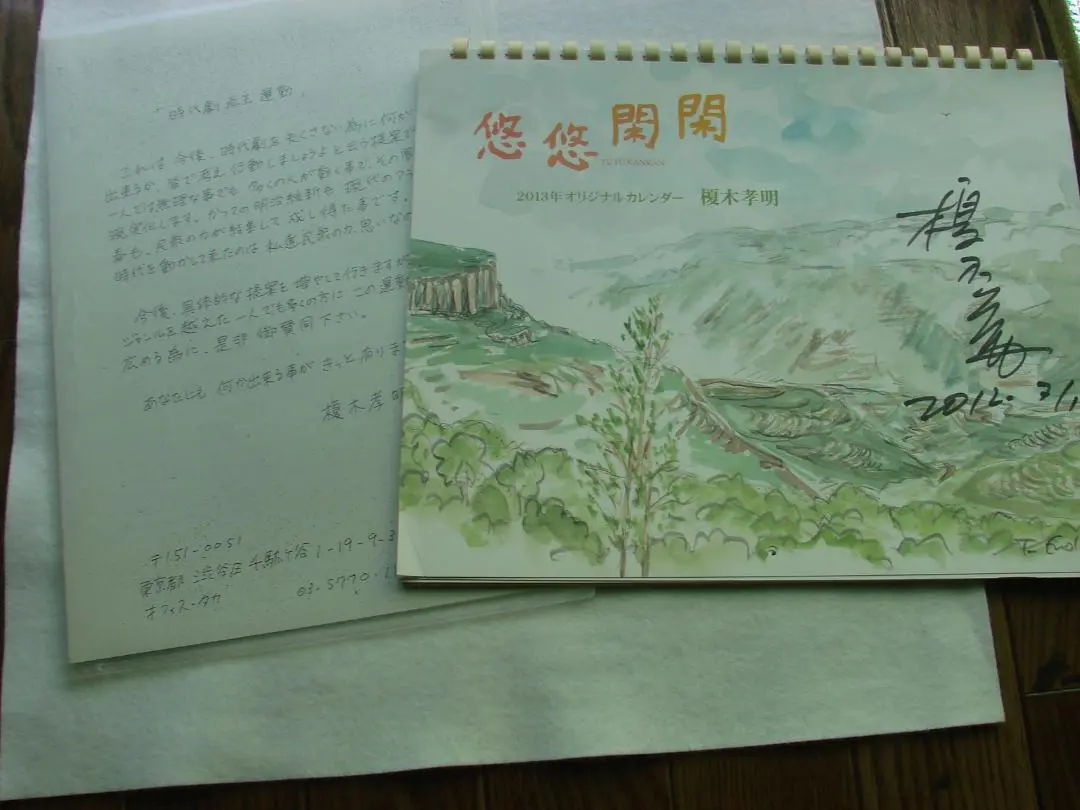 「時代劇 運動」
これは今後、時代劇を失くさない為に何か
出来るか、皆で考え行動しましょうよと云う提案で
一人では無理な事でも多くの人が動く事で、その
現実化します。かつての明治維新も現代のアラ
春も、民衆の力が結集して成し得た事です。
時代を動かして来たのは私達民衆の力、思いなの
今後、具体的な提案を増やして行きますが
ジャンルを越えた一人でも多くの方にこの運動
広める為に、是非御賛同下さい。
あなたにも何か出来る事がきっとありま
榎木孝
〒151-0051
東京都渋谷区千駄ケ谷1-19-9-3
オフィス-タカ 03-5770-
悠悠閑閑
YUYUKANKAN
2013年オリジナルカレンダー 榎木孝明
榎木孝明
2012.
T. Enoki